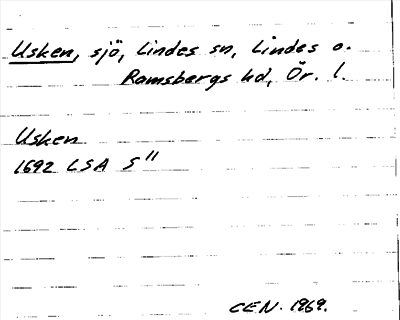 Usken, sjö, Lindes sn, Lindes o.
Ramsbergs hd, Ör. l.
Usken
1692 LSA S 11
CEN. 1969.